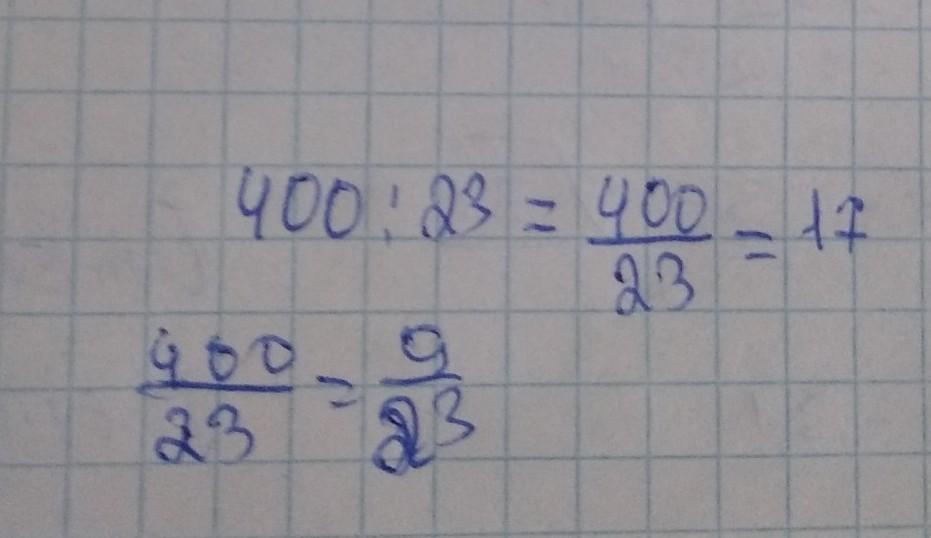 400 : 23 = 400/23 = 17
400/23 = 9/23